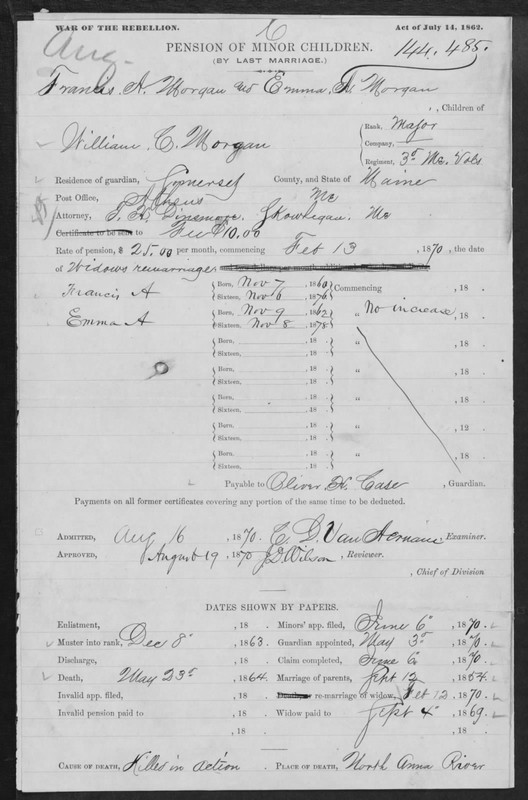 WAR OF THE REBELLION. Act of July 14, 1862.
Aug.
PENSION OF MINOR CHILDREN. 144.485.
(BY LAST MARRIAGE.)
Francis A. Morgan and Emma A Morgan
, Children of
William C. Morgan
Rank, Major
Company,
Regiment, 3d Me. Vols
Residence of guardian, Somerset County, and State of Maine
Post Office, Athens Me
Attorney, Dinsmore, Skowhegan, Me
Certificate to be sent to Fee $10.00
Rate of pension, $ 25.00 per month, commencing Feb 13, 1870, the date
of Widows remarriage
Francis A Born, Nov 7, 1860 Commencing , 18 .
Sixteen, Nov 6 1876
Emma A Born, Nov 9, 1862 " No increase, 18 .
Sixteen, Nov 8 1878
Born, , 18 . " , 18 .
Sixteen, , 18 .
Born, , 18 . " , 18 .
Sixteen, , 18 .
Born, , 18 . " , 18 .
Sixteen, , 18 .
Born, , 18 . " , 12 .
Sixteen, , 18 .
Born, , 18 . " , 18 .
Sixteen, , 18 .
Payable to Oliver H. Case, Guardian.
Payments on all former certificates covering any portion of the same time to be deducted.
ADMITTED, Aug 16, 1870. Examiner.
APPROVED, August 19, 1870 Wilson, Reviewer.
, Chief of Division
DATES SHOWN BY PAPERS.
Enlistment, , 18 . Minors' app. filed, June 6", 1870.
Muster into rank, Dec 8", 1863. Guardian appointed, May 3d, 1870.
Discharge, , 18 . Claim completed, June 6", 1870.
Death, May 23d, 1864. Marriage of parents, Sept 12, 1854.
Invalid app. filed, , 18 . re-marriage of widow, Feb 12, 1870.
Invalid pension paid to , 18 . Widow paid to Sept 4", 1869.
, 18 . , 18 .
CAUSE OF DEATH, Killed in action PLACE OF DEATH, North Anna River